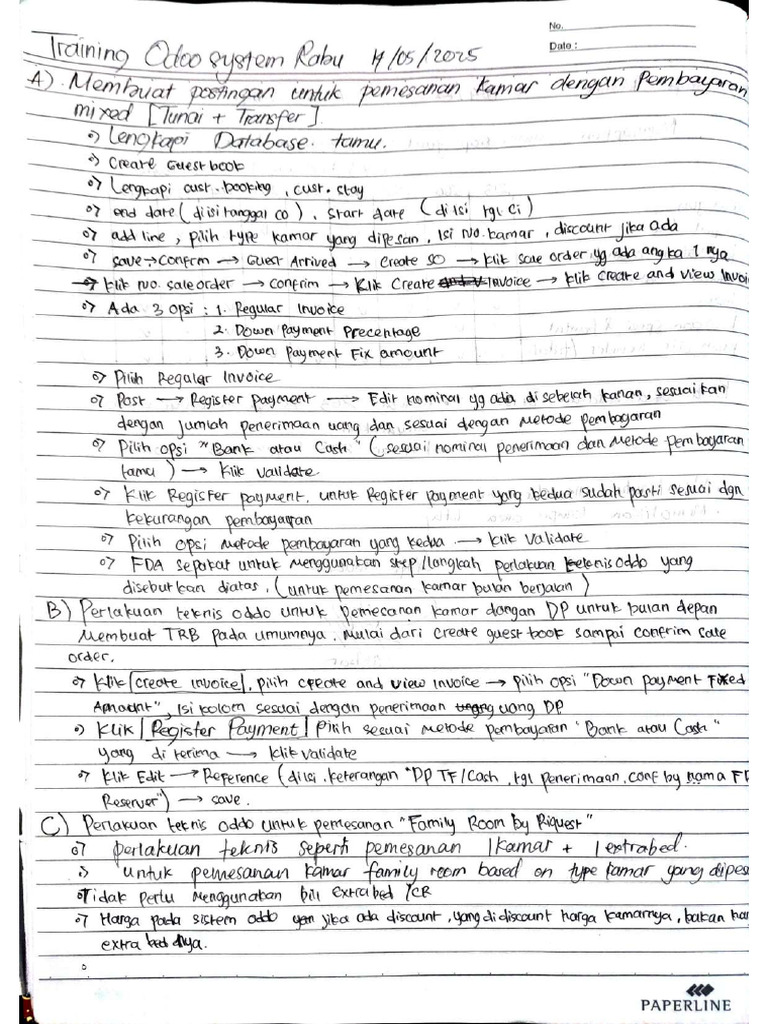 No.
Date :
Training Odoo system Rabu 14/05/2025
A) Membuat postingan untuk pemesanan kamar dengan Pembayaran
mixed [Tunai + Transfer].
Lengkapi Database tamu.
Create Guest book
Lengkapi cust. booking, cust. stay
end date (di isi tanggal CO), Start date (di isi tgl Ci)
add line, pilih type kamar yang dipesan, Isi No. kamar, discount jika ada
save → Confirm → Guest Arrived → Create SO → klik sale order yg ada angka 1 nya
→ klik No. sale order → confrim → Klik Create Invoice → klik Create and view Invoi
Ada 3 opsi : 1. Regular Invoice
2. Down Payment Precentage
3. Down Payment Fix amount
Pilih Regular Invoice
Post → Register payment → Edit nominal yg ada di sebelah kanan, sesuaikan
dengan jumlah penerimaan uang dan sesuai dengan metode pembayaran
Pilih opsi "Bank atau Cash" (sesuai nominal penerimaan dan metode pembayaran
tamu) → klik validate
Klik Register payment, untuk Register payment yang kedua sudah pasti sesuai dgn
kekurangan pembayaran
Pilih opsi metode pembayaran yang kedua → klik Validate
FDA sepakat untuk menggunakan step/langkah perlakuan teknis Oddo yang
disebutkan diatas, (untuk pemesanan kamar bulan berjalan)
B) Perlakuan teknis oddo untuk pemecanan kamar dangan DP untuk bulan depan
Membuat TRB pada umumnya, mulai dari create guest book sampai confrim sale
order.
Klik [create invoice], pilih create and view invoice → pilih opsi "Down payment Fixed
Amount", Isi kolom sesuai dengan penerimaan uang DP
Klik [Register Payment] Pilih sesuai metode pembayaran "Bank atau Cash"
yang di terima → klik validate
Klik Edit → Reference (di isi keterangan "DP TF/Cash, tgl penerimaan, conf by nama F
Reserver") → save.
C) Perlakuan teknis oddo untuk pemesanan "Family Room by Riquest"
perlakuan teknis seperti pemesanan 1 kamar + 1 extrabed.
untuk pemesanan kamar family room based on type kamar yang dipes
Tidak Perlu menggunakan bill extrabed /CR
Harga pada sistem oddo jika ada discount, yang di discount harga kamarnya, bukan har
extra bed nya.
PAPERLINE